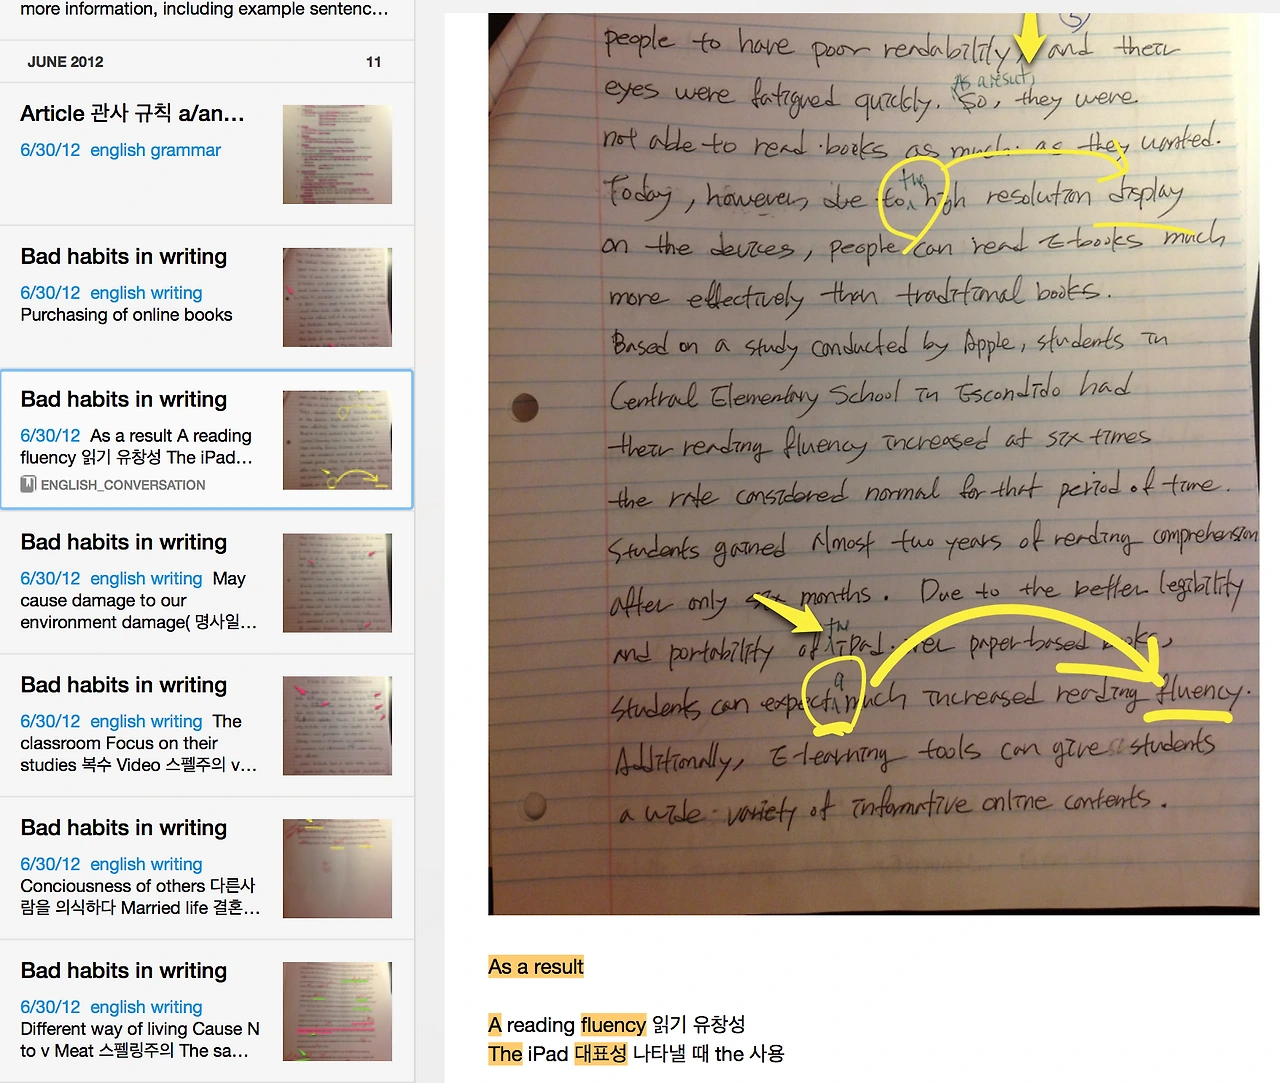 more information, including example sentenc...
JUNE 2012 11
Article 관사 규칙 a/an...
6/30/12 english grammar
Bad habits in writing
6/30/12 english writing
Purchasing of online books
Bad habits in writing
6/30/12 As a result A reading
fluency 읽기 유창성 The iPad...
ENGLISH_CONVERSATION
Bad habits in writing
6/30/12 english writing May
cause damage to our
environment damage( 명사일...
Bad habits in writing
6/30/12 english writing The
classroom Focus on their
studies 복수 Video 스펠주의 v...
Bad habits in writing
6/30/12 english writing
Conciousness of others 다른사
람을 의식하다 Married life 결혼...
Bad habits in writing
6/30/12 english writing
Different way of living Cause N
to v Meat 스펠링주의 The sa...
people to have poor readability, and their
As a result,
eyes were fatigued quickly. So, they were
not able to read books as much as they wanted.
the
Today, however, due to high resolution display
on the devices, people can read E-books much
more effectively than traditional books.
Based on a study conducted by Apple, students in
Central Elementary School in Escondido had
their reading fluency increased at six times
the rate considered normal for that period of time.
Students gained Almost two years of reading comprehension
after only six months. Due to the better legibility
the
and portability of iPad over paper-based books,
a
students can expect much increased reading fluency.
Additionally, E-learning tools can give students
a wide variety of informative online contents.
As a result
A reading fluency 읽기 유창성
The iPad 대표성 나타낼 때 the 사용